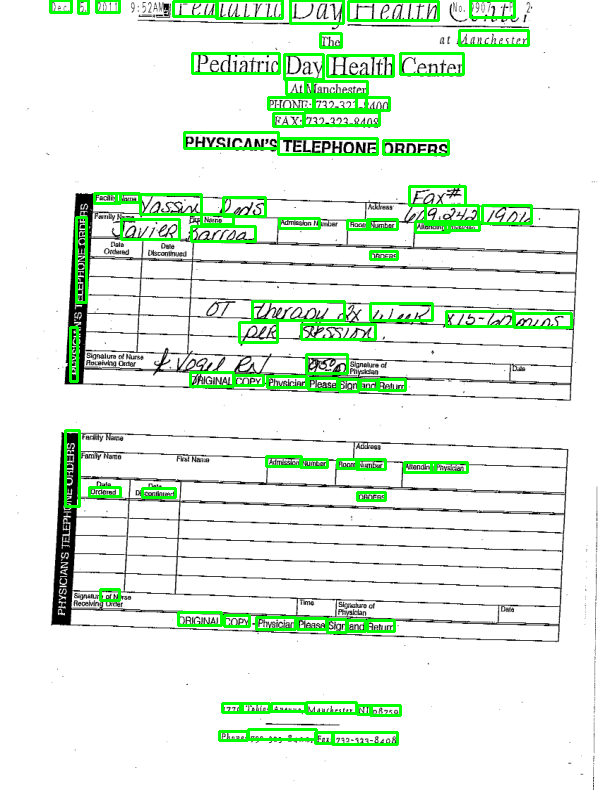 Dec. 5. 2011 9:52AM Pediatric Day Health Center No. 2
The at Manchester
Pediatric Day Health Center
At Manchester
PHONE: 732-323-8400
FAX: 732-323-8408
PHYSICIAN'S TELEPHONE ORDERS
PHYSICIAN'S TELEPHONE ORDERS
Facility Name Address Fax#
609.242.1901
Family Name First Name Admission Number Room Number Attending Physician
Javier
Date Ordered Date Discontinued ORDERS
OT therapy 2x week x15-60 mins
per session.
Signature of Nurse Receiving Order J. Vogel RN Signature of Physician Date
ORIGINAL COPY - Physician Please Sign and Return
PHYSICIAN'S TELEPHONE ORDERS
Facility Name Address
Family Name First Name Admission Number Room Number Attending Physician
Date Ordered Date Discontinued ORDERS
Signature of Nurse Receiving Order Time Signature of Physician Date
ORIGINAL COPY - Physician Please Sign and Return
Manchester NJ 08759
Phone: Fax 732-323-8408